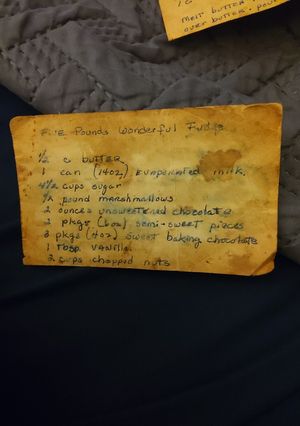 1 c
melt butter
over butter. pour
Five Pounds Wonderful Fudge
1/2 c butter
1 can (14oz) Evaporated milk,
4 1/2 cups sugar
1/2 pound marshmallows
2 ounces unsweetened chocolate
2 pkgs (6oz) semi-sweet pieces
3 pkgs (4oz) sweet baking chocolate
1 Tbsp. vanilla
2 cups chopped nuts